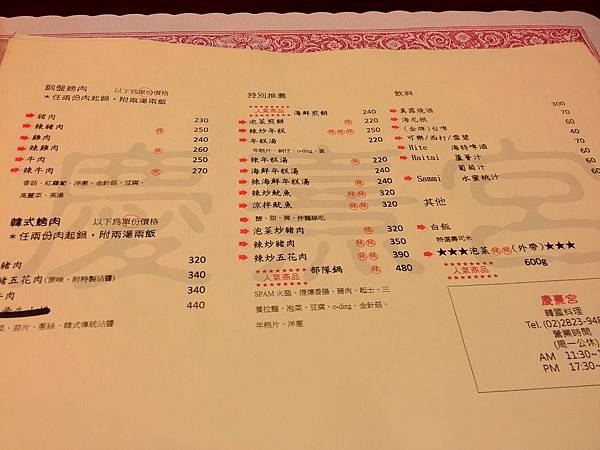 銅盤烤肉 以下為單份價格
*任兩份肉起鍋,附兩湯兩飯
豬肉 230
辣豬肉 辣 250
雞肉 240
辣雞肉 辣 260
牛肉 250
辣牛肉 辣 270
香菇、紅蘿蔔、洋蔥、金針菇、豆腐、
高麗菜、高湯
韓式烤肉 以下為單份價格
*任兩份肉起鍋,附兩湯兩飯
豬肉 320
豬五花肉(原味,附特製沾醬) 340
牛肉 340
440
菜、蒜片、蔥絲、韓式傳統沾醬
特別推薦
人氣商品 海鮮煎餅 240
泡菜煎餅 辣 220
辣炒年糕 辣辣辣 250
年糕湯 220
年糕片、蝦仔、o-ding、蛋
辣年糕湯 辣 220
海鮮年糕湯 250
辣海鮮年糕湯 辣 250
辣炒魷魚 辣辣 320
涼拌魷魚 辣辣 320
酸、甜、辣、拌麵線吃
泡菜炒豬肉 辣 320
辣炒豬肉 辣辣 350
辣炒五花肉 辣辣 390
人氣商品 部隊鍋 辣 480
SPAM火腿、煙燻香腸、豬肉、起士、三
養拉麵、泡菜、豆腐、o-ding、金針菇、
年糕片、洋蔥
飲料
真露燒酒 300
海尼根 70
(金牌)台啤 60
可樂/西打/雪碧 40
Hite 海特啤酒 70
Haitai 蘆薈汁
葡萄汁
Sammi 水蜜桃汁
其他
白飯
特選壽司米
★★★泡菜辣辣(外帶)★★★
人氣商品 600g
慶熹宮
韓國料理
Tel. (02)2823-948
營業時間
(周一公休)
AM 11:30~1
PM 17:30~
慶熹宮